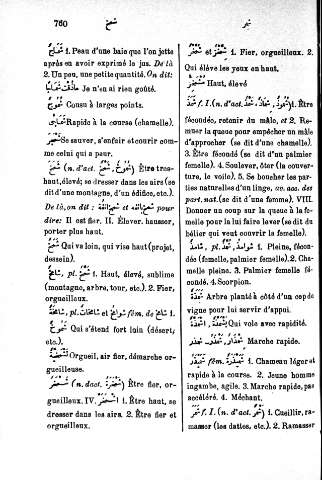 760
شمخ
شمر
1. Peau d'une baie que l'on jette
après en avoir exprimé le jus. De là
2. Un peu, une petite quantité. On dit:
Je n'en ai rien goûté.
Cousu à larges points.
Rapide à la course (chamelle).
Se sauver, s'enfuir et courir com-
me celui qui a peur.
(n. d'act. ) Être très-
haut, élevé; se dresser dans les airs (se
dit d'une montagne, d'un édifice, etc.).
De là, on dit: et pour
dire: Il est fier. II. Élever, hausser,
porter plus haut.
Qui va loin, qui vise haut (projet,
dessein).
pl. 1. Haut, élevé, sublime
(montagne, arbre, tour, etc.). 2. Fier,
orgueilleux.
pl. et fém. de
Qui s'étend fort loin (désert,
etc.).
Orgueil, air fier, démarche or-
gueilleuse.
(n. d'act. ) Être fier, or-
gueilleux. IV. 1. Être haut, se
dresser dans les airs. 2. Être fier et
orgueilleux.
et 1. Fier, orgueilleux. 2.
Qui élève les yeux en haut.
Haut, élevé
f. I. (n. d'act. ) 1. Être
fécondée, retenir du mâle, et 2. Re-
muer la queue pour empêcher un mâle
d'approcher (se dit d'une chamelle).
3. Être fécondé (se dit d'un palmier
femelle). 4. Soulever, ôter (la couver-
ture, le voile). 5. Se boucher les par-
ties naturelles d'un linge, av. acc. des
part. nat. (se dit d'une femme). VIII.
Donner un coup sur la queue à la fe-
melle pour la lui faire lever (se dit du
bélier qui veut couvrir la femelle).
pl. 1. Pleine, fécon-
dée (femelle, palmier femelle). 2. Cha-
melle pleine. 3. Palmier femelle fé-
condé. 4. Scorpion.
Arbre planté à côté d'un cep de
vigne pour lui servir d'appui.
Qui vole avec rapidité.
Marche rapide.
1. Chameau léger et
rapide à la course. 2. Jeune homme
ingambe, agile. 3. Marche rapide, pas
accéléré. 4. Méchant.
f. I. (n. d'act. ) 1. Cueillir, ra-
masser (les dattes, etc.). 2. Ramasser